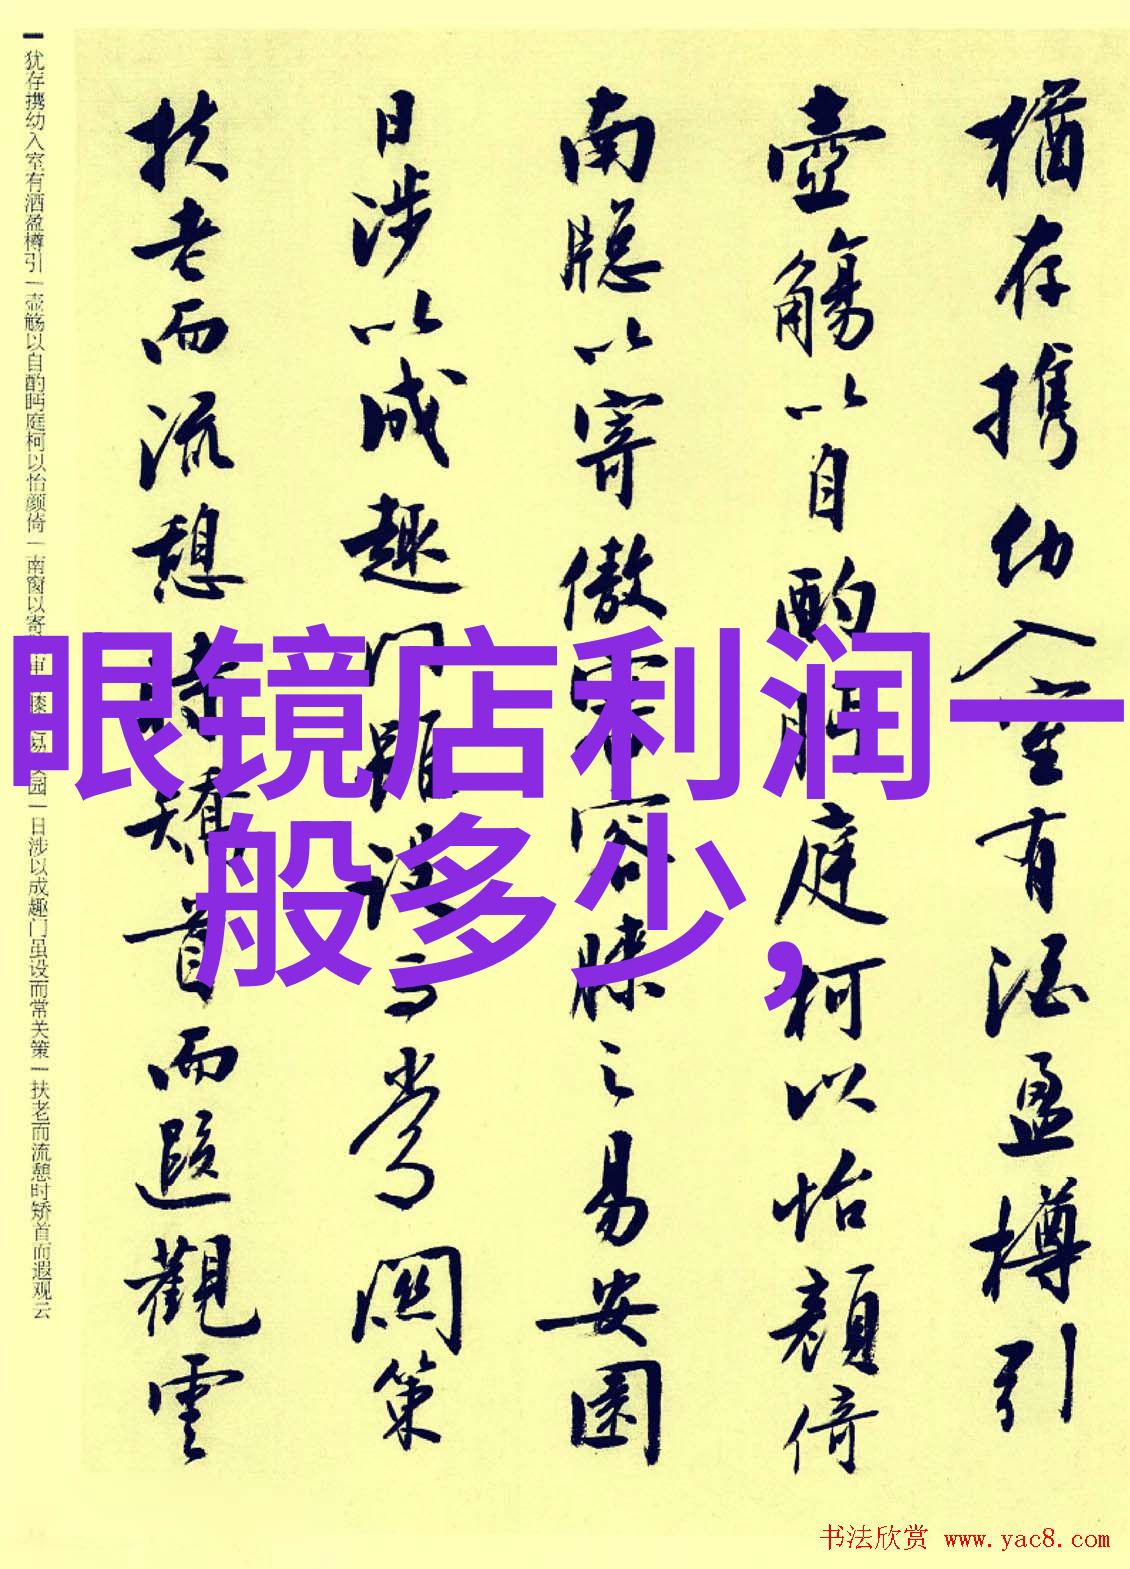 猶存携幼入室有酒盈樽引
壺觴以自酌眄庭柯以怡顔倚
南牕以寄傲審容膝之易安園
日涉以成趣門雖設而常関策
扶老而流憩時矯首而遐觀雲
犹存携幼入室有酒盈樽引|壶觞以自酌眄庭柯以怡颜倚|南窗以寄 审 膝 易 园|日涉以成趣门虽设而常关策|扶老而流憩时矫首而遐观云
眼镜店利润一
般多少,
书法欣赏 www.yac8.com